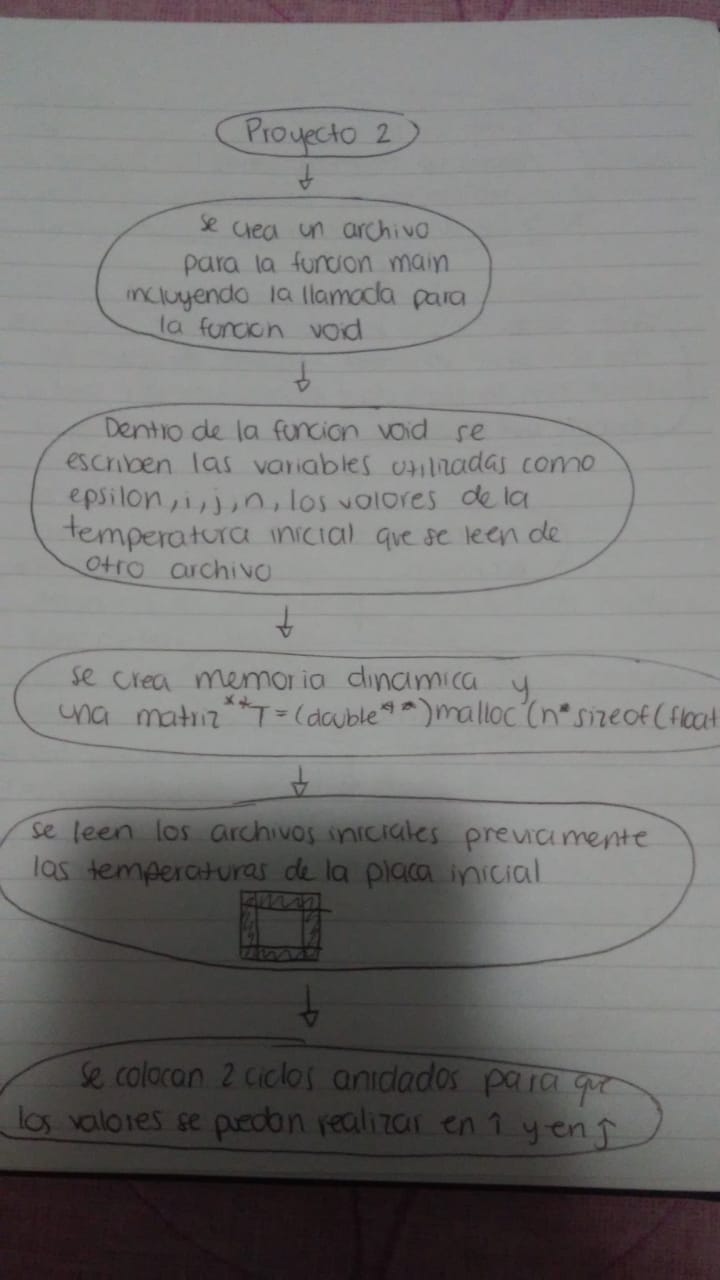 Proyecto 2
se crea un archivo
para la funcion main
incluyendo la llamada para
la funcion void
Dentro de la funcion void se
escriben las variables utilizadas como
epsilon, i, j, n, los valores de la
temperatura inicial que se leen de
otro archivo
se crea memoria dinamica y
una matriz **T=(double**)malloc(n*sizeof(float
se leen los archivos iniciales previamente
las temperaturas de la placa inicial
se colocan 2 ciclos anidados para que
los valores se puedan realizar en i y en j